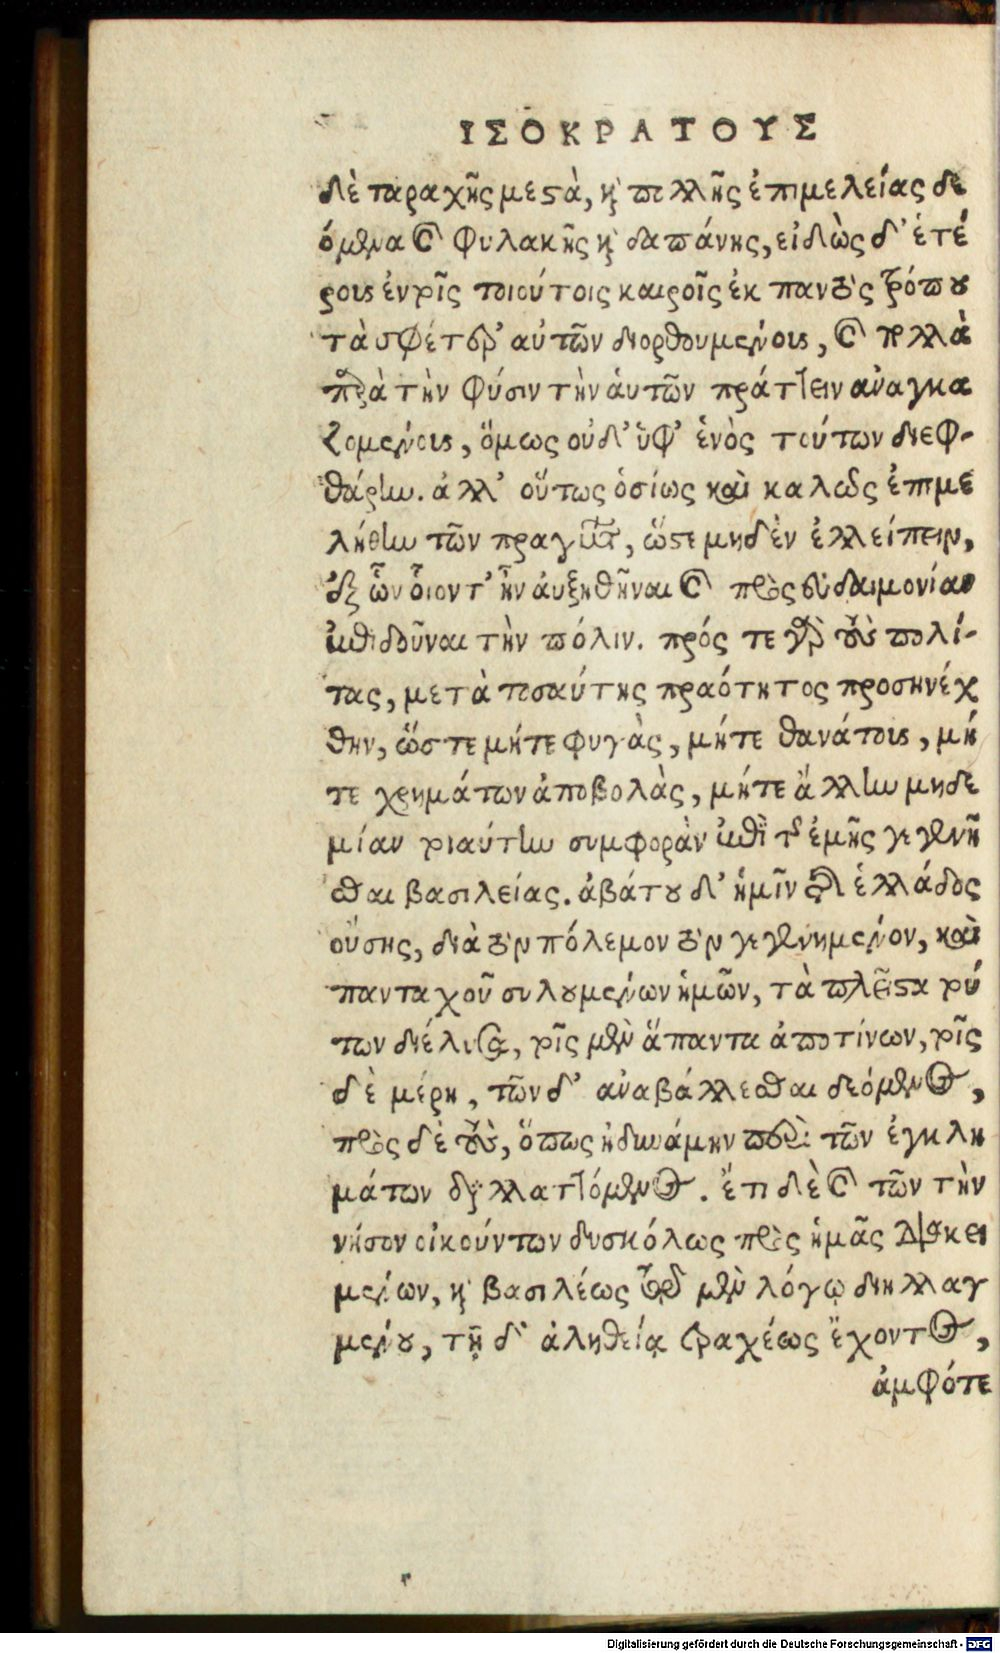 ΙΣΟΚΡΑΤΟΥΣ
δὲ ταραχῆς μεστὰ, καὶ πολλῆς ἐπιμελείας δε
όμενα καὶ φυλακῆς καὶ δαπάνης, εἰδὼς δ' ἑτέ
ρους ἐν τοῖς τοιούτοις καιροῖς ἐκ παντὸς τρόπου
τὰ σφέτερ' αὐτῶν διορθουμένους, καὶ πολλὰ
παρὰ τὴν φύσιν τὴν ἁυτῶν πράττειν αναγκα
ζομένους, ὅμως οὐδ' ὑφ' ἑνὸς τούτων διεφ-
θάρην. ἀλλ' οὕτως ὁσίως καὶ καλῶς ἐπιμε
λήθην τῶν πραγμάτων, ὥστε μηδὲν ἐλλείπειν,
ἐξ ὧν οἷον τ' ἦν ἀυξηθῆναι καὶ πρὸς εὐδαιμονίαν
ἐπιδοῦναι τὴν πόλιν. πρός τε γὰρ τοὺς πολί-
τας, μετὰ τοσαύτης πραότητος προσηνέχ
θην, ὥστε μήτε φυγὰς, μήτε θανάτους, μή
τε χρημάτων ἀποβολὰς, μήτε ἄλλην μηδε
μίαν τοιαύτην συμφορὰν ἐπὶ τῆς ἐμῆς γεγενῆ
σθαι βασιλείας. ἀβάτου δ' ἡμῖν τῆς ἑλλάδος
οὔσης, διὰ τὸν πόλεμον τὸν γεγενημένον, καὶ
πανταχοῦ συλουμένων ἡμῶν, τὰ πλεῖστα τού
των διέλυσα, τοῖς μὲν ἅπαντα ἀποτίνων, τοῖς
δὲ μέρη, τῶν δ' αναβάλλεσθαι δεόμενος,
πρὸς δὲ τοὺς, ὅπως ἠδυνάμην περὶ τῶν ἐγκλη
μάτων διαλλαττόμενος. ἔτι δὲ καὶ τῶν τὴν
νήσον οἰκούντων δυσκόλως πρὸς ἡμᾶς διακει
μένων, καὶ βασιλέως τῷ μὲν λόγῳ διηλλαγ
μένου, τῇ δ' ἀληθείᾳ τραχέως ἔχοντος,
ἀμφότε
Digitalisierung gefördert durch die Deutsche Forschungsgemeinschaft - DFG